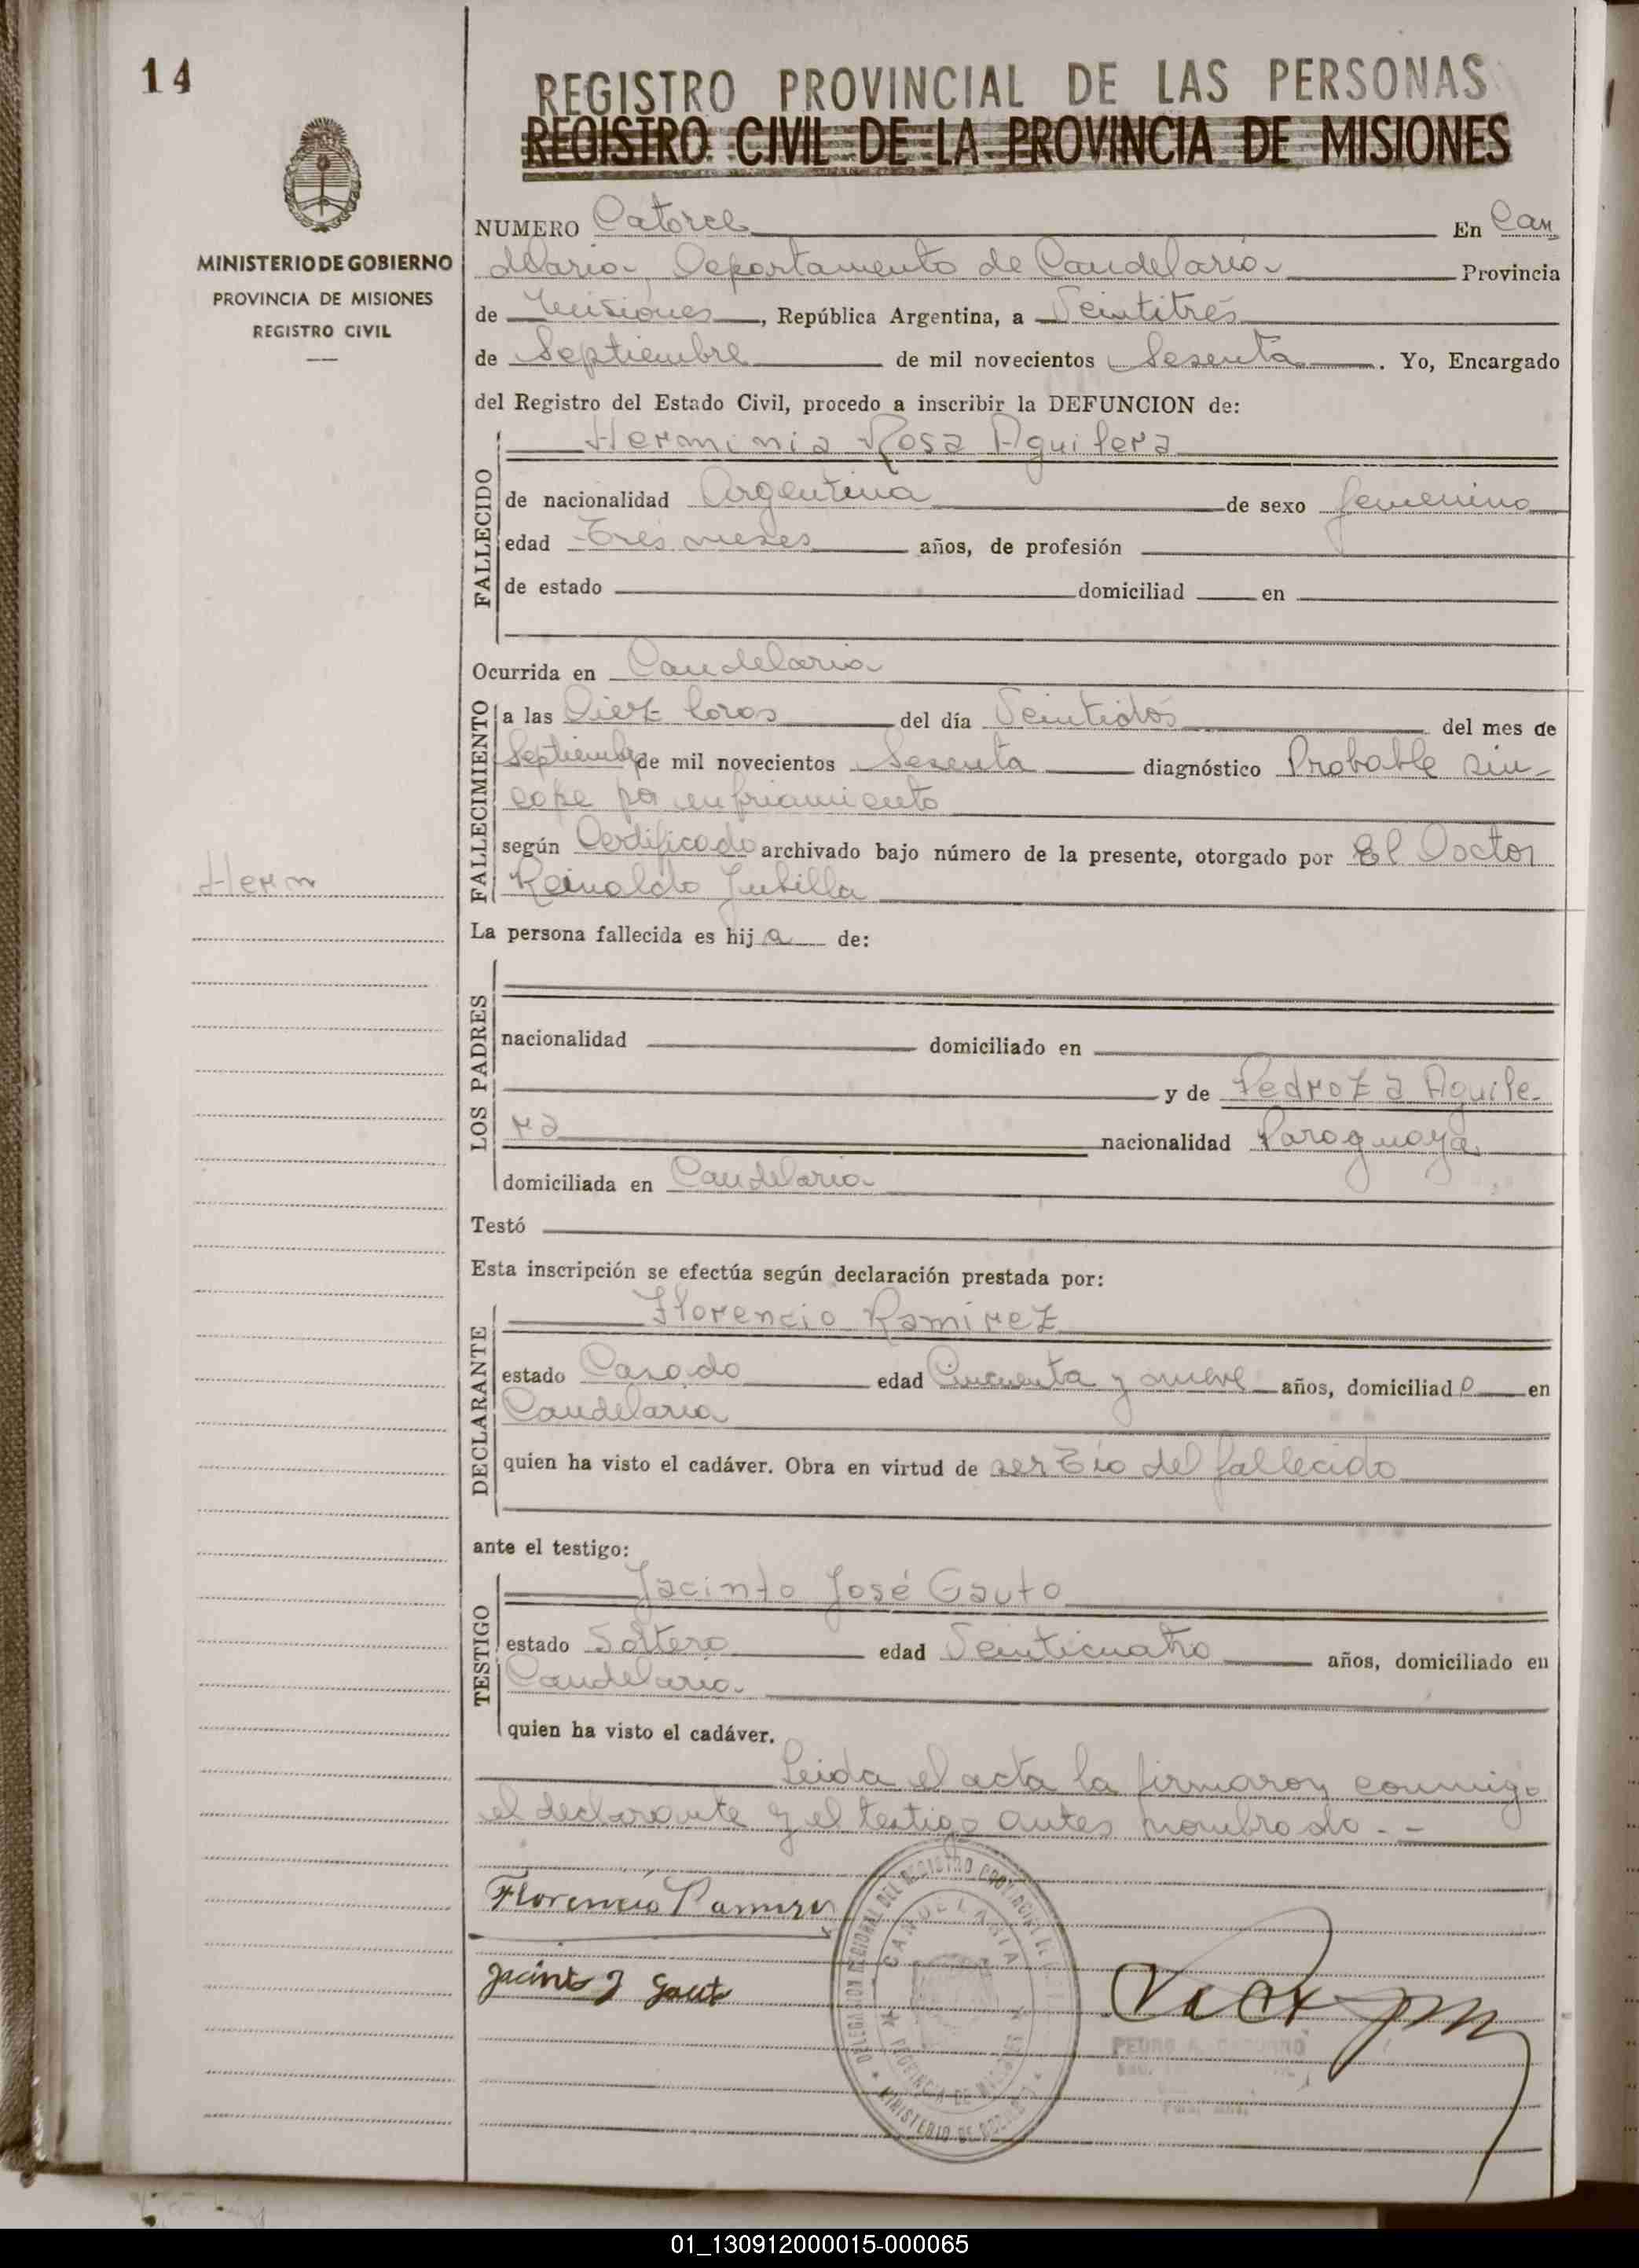 14
REGISTRO PROVINCIAL DE LAS PERSONAS
REGISTRO CIVIL DE LA PROVINCIA DE MISIONES
MINISTERIO DE GOBIERNO
PROVINCIA DE MISIONES
REGISTRO CIVIL
NUMERO Catorce En Can
delaria, Departamento de Candelaria Provincia
de Misiones, República Argentina, a Veintitrés
de Septiembre de mil novecientos Sesenta. Yo, Encargado
del Registro del Estado Civil, procedo a inscribir la DEFUNCION de:
FALLECIDO
Herminia Rosa Aguilera
de nacionalidad Argentina de sexo femenino
edad Tres meses años, de profesión
de estado domiciliad en
Ocurrida en Candelaria
FALLECIMIENTO
a las Diez horas del día Veintidós del mes de
Septiembre de mil novecientos Sesenta diagnóstico Probable sin-
cope por enfriamiento
según Certificado archivado bajo número de la presente, otorgado por El Doctor
Reinaldo Jubilla
Herm
La persona fallecida es hija de:
LOS PADRES
nacionalidad domiciliado en
y de Pedroza Aguile-
ra nacionalidad Paraguaya
domiciliada en Candelaria
Testó
Esta inscripción se efectúa según declaración prestada por:
DECLARANTE
Florencio Ramirez
estado Casado edad Cincuenta y nueve años, domiciliado en
Candelaria
quien ha visto el cadáver. Obra en virtud de ser Tio del fallecido
ante el testigo:
TESTIGO
Jacinto José Gauto
estado Soltero edad Veinticuatro años, domiciliado en
Candelaria.
quien ha visto el cadáver.
Leida el acta la firmaron conmigo
el declarante y el testigo antes nombrado.-
Florencio Ramirez
Jacinto J Gauto
DELEGACION REGIONAL DEL REGISTRO PROVINCIAL
CANDELARIA
PROVINCIA DE MISIONES
MINISTERIO DE GOBIERNO
PEDRO A.
01_130912000015-000065